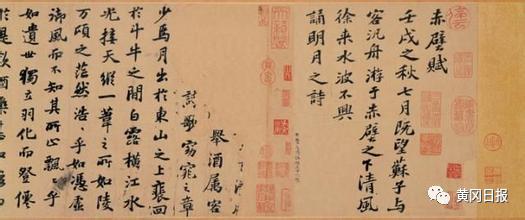 赤壁賦
壬戌之秋七月既望蘇子與
客汎舟游于赤壁之下清風
徐来水波不興
誦明月之詩
舉酒屬客
歌窈窕之章
少焉月出於東山之上裴回
於斗牛之間白露橫江水
光接天縱一葦之所如陵
萬頃之茫然浩〻乎如憑虛
御風而不知其所止飄〻乎
如遺世獨立羽化而登僊
於是飲酒樂
黄冈日报